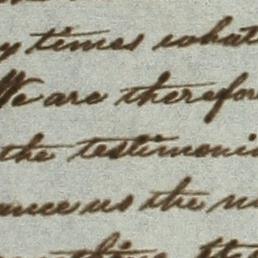 y times what
We are therefor
the testimoni
ance as the